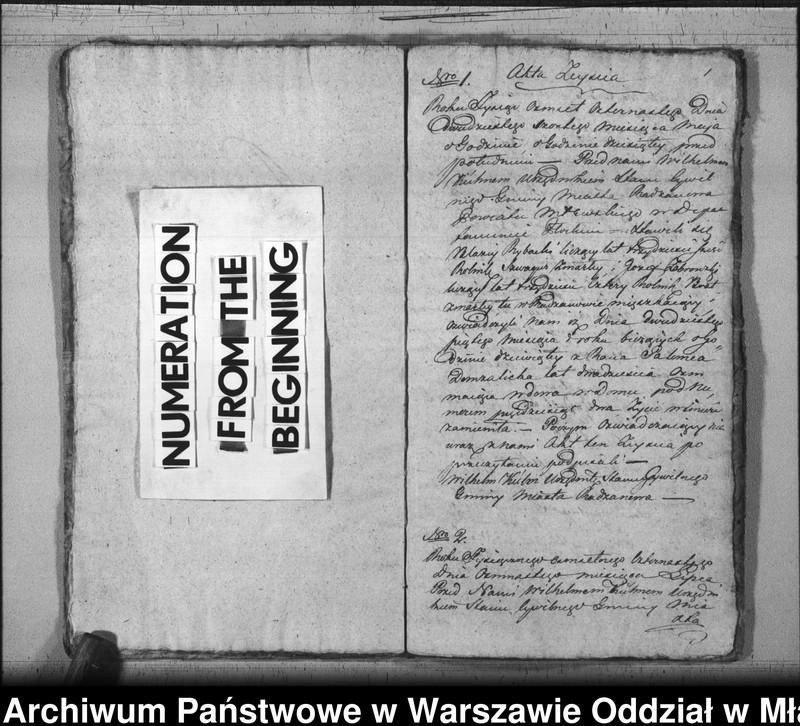 NUMERATION
FROM THE
BEGINNING
Nro 1. Akta Zeyscia 1
Roku Tysiąc Osmset Czternastego Dnia
Dwudziestego szóstego Miesiąca Maja
o Godzinie o Godzinie dziesiątey przed
południem — Przed nami Wilhelmem
Kühnem Urzędnikiem Stanu Cywil
nego Gminy Miasta Radzanowa
Powiatu Mławskiego w Depar
tamencie Płockim — Stawili się
Rybacki liczący lat trzydzieści
Rolnik Szwagier Zmarły i Jozef
liczący lat trzydzieści cztery Rolnik Brat
zmarły tu w Radzanowie mieszkający
oswiadczyli nam iż Dnia dwudziestego
piątego miesiąca i roku bieżących o go
dzinie dziewiątey z Rana Salomea
lat dwadziescia Osm
maiąca wdowa w domu pod Nu
merem pięćdziesiąt dwa Zycie
— Poczym Oswiadczaiący
wraz z nami Akt ten Zeyscia po
przeczytaniu podpisali —
Wilhelm Kühn Urzędnik Stanu Cywilnego
Gminy Miasta Radzanowa —
Nro 2.
Roku Tysiącznego osmsetnego Czternastego
Dnia Osmnastego miesiąca Lipca
Przed Nami Wilhelmem Kühnem Urzędni
kiem Stanu Cywilnego Gminy Mia
sta
Archiwum Państwowe w Warszawie Oddział w Mła